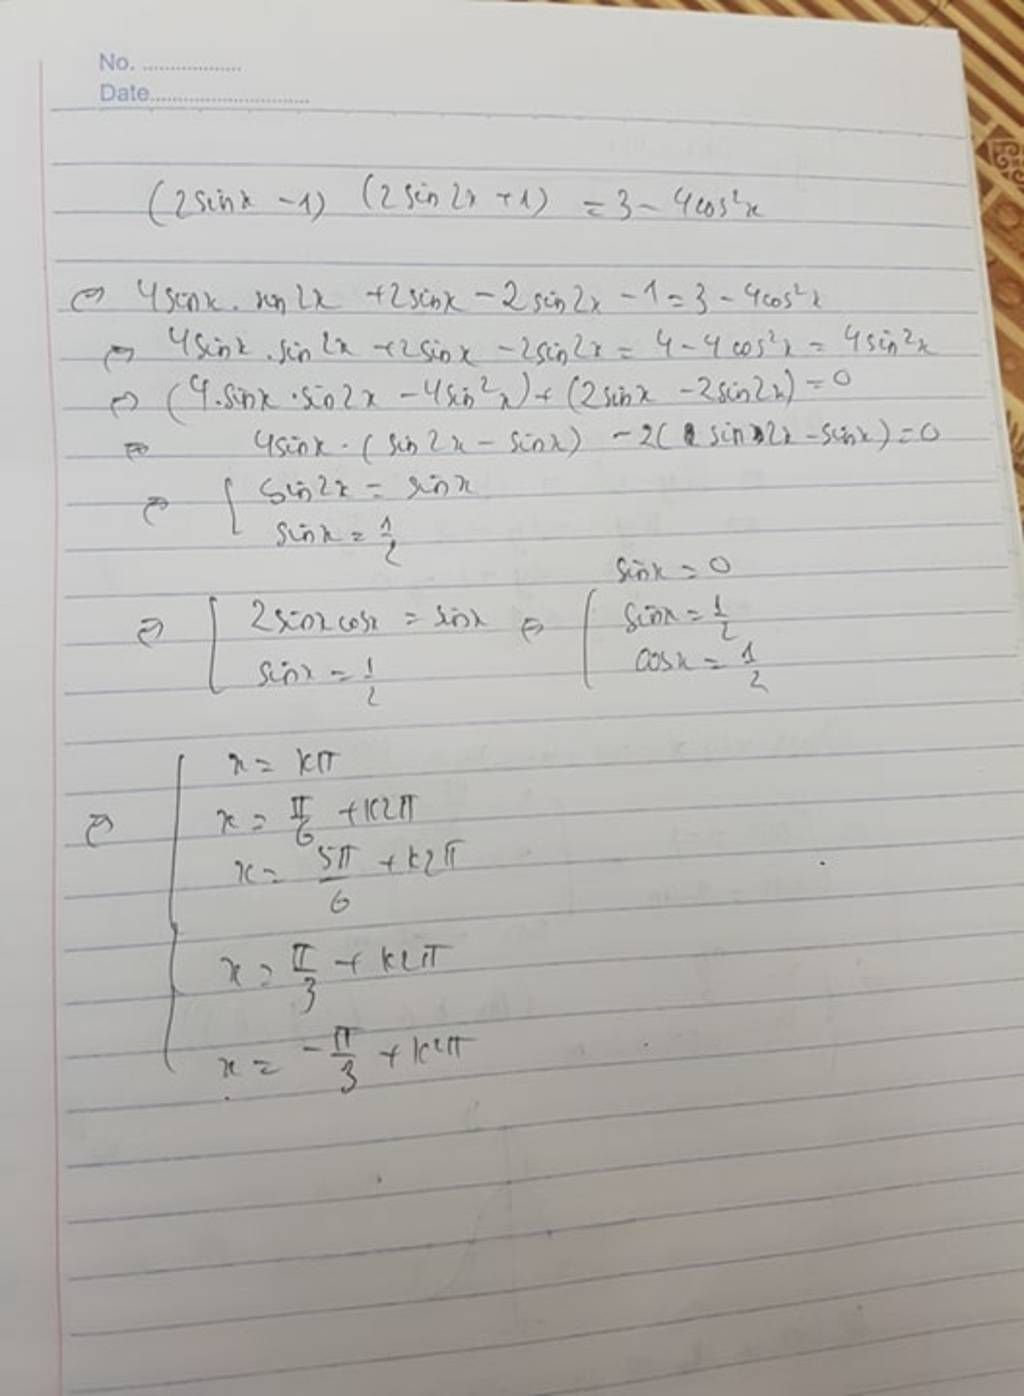 No. ..................
Date.............................
(2sinx - 1) (2sin2x + 1) = 3 - 4cos²x
⇔ 4sinx. sin2x + 2sinx - 2sin2x - 1 = 3 - 4cos²x
⇔ 4sinx.sin2x + 2sinx - 2sin2x = 4 - 4cos²x = 4sin²x
⇔ (4.sinx.sin2x - 4sin²x) + (2sinx - 2sin2x) = 0
⇔ 4sinx.(sin2x - sinx) - 2(sin2x - sinx) = 0
⇔ [ sin2x = sinx
sinx = 1/2
⇔ [ 2sinxcosx = sinx ⇔ [ sinx = 0
sinx = 1/2 sinx = 1/2
cosx = 1/2
⇔ [ x = kπ
x = π/6 + k2π
x = 5π/6 + k2π
x = π/3 + k2π
x = -π/3 + k2π